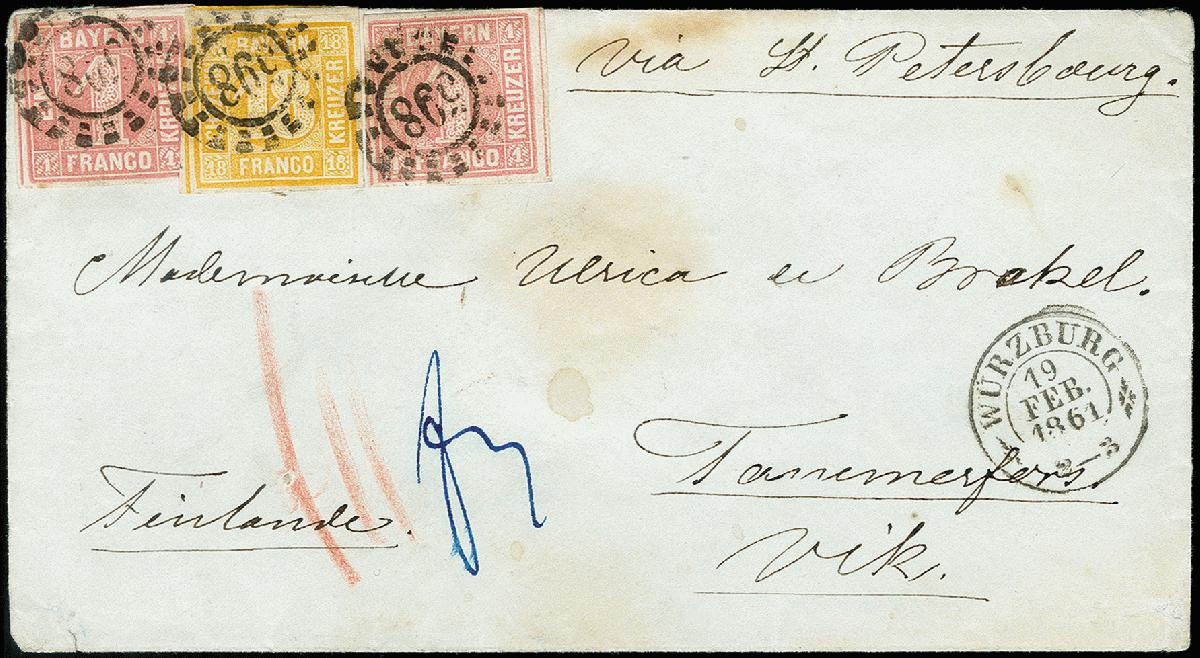 BAYERN 1 KREUZER 1 FRANCO 1
18 BAYERN 18 KREUZER 18 FRANCO 18
BAYERN 1 KREUZER 1 FRANCO 1
598
598
via St. Petersbourg.
Mademoiselle Ulrica
WÜRZBURG
19
FEB.
1861
2-3
Tammerfors
Finlande.
Vik.